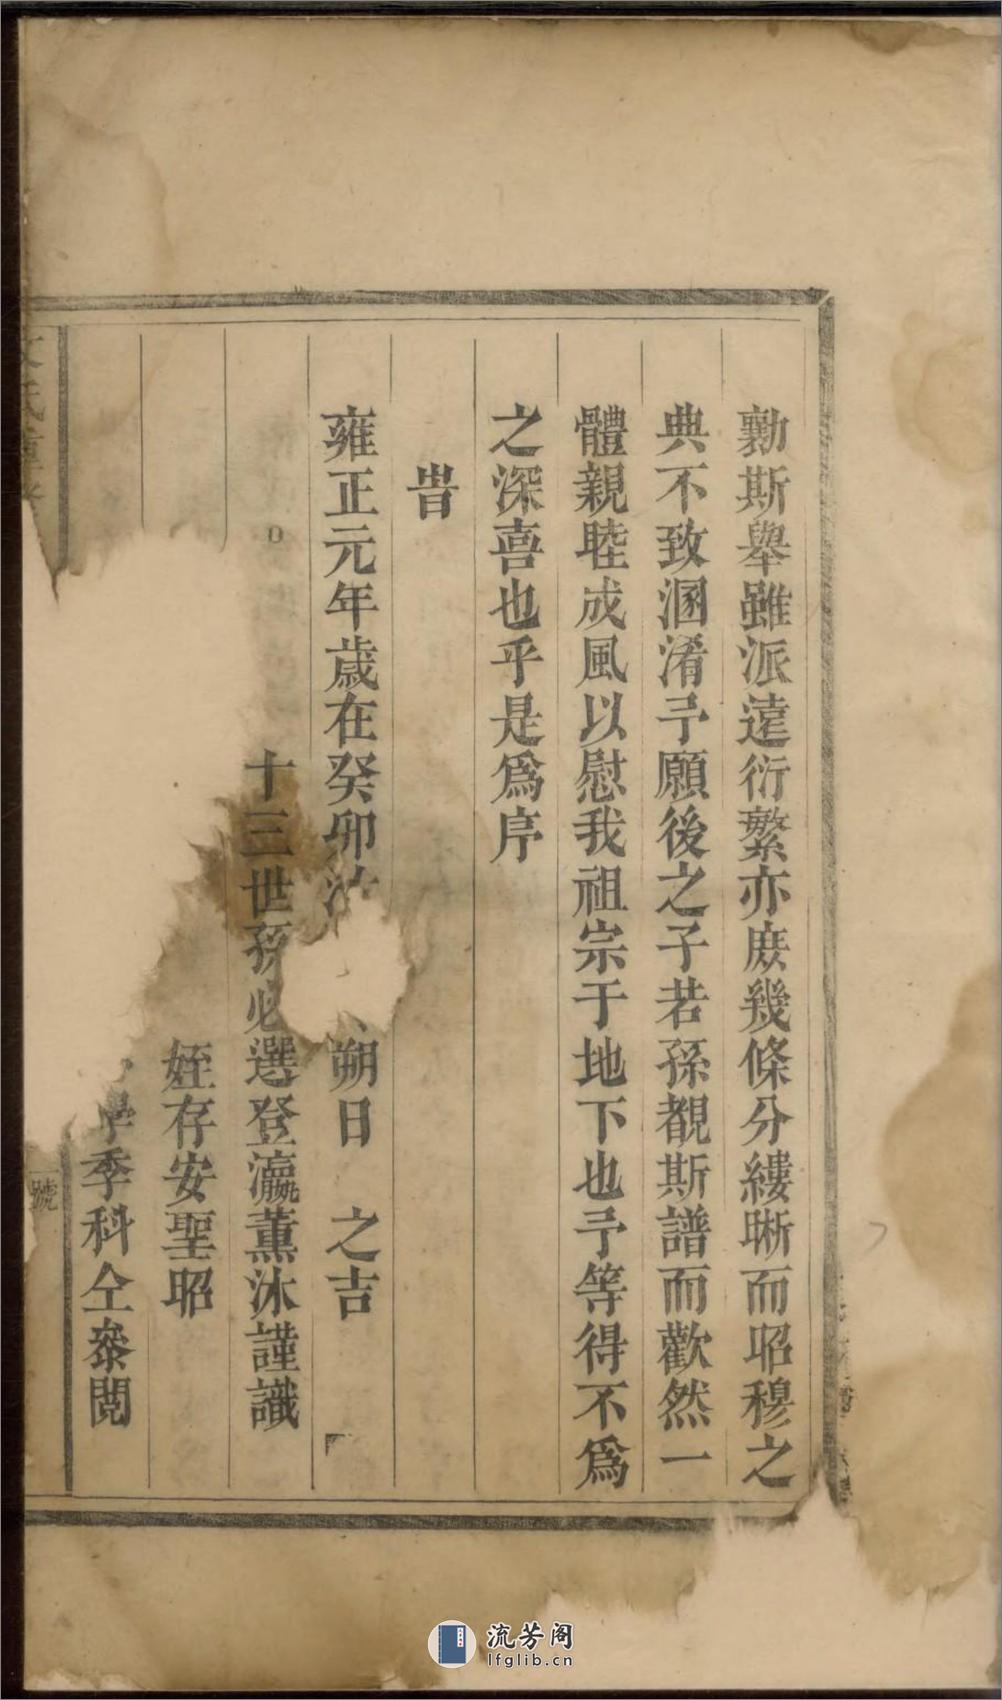 勷斯舉雖派遠衍繁亦庶幾條分縷晰而昭穆之
典不致溷淆予願後之子若孫覩斯譜而歡然一
體親睦成風以慰我祖宗于地下也予等得不爲
之深喜也乎是爲序
旹
雍正元年歲在癸卯 朔日 之吉
十三世孫必選登瀛薰沐謹識
姪存安聖昭
季科仝叅閲
氏
號
流芳阁
lfglib.cn